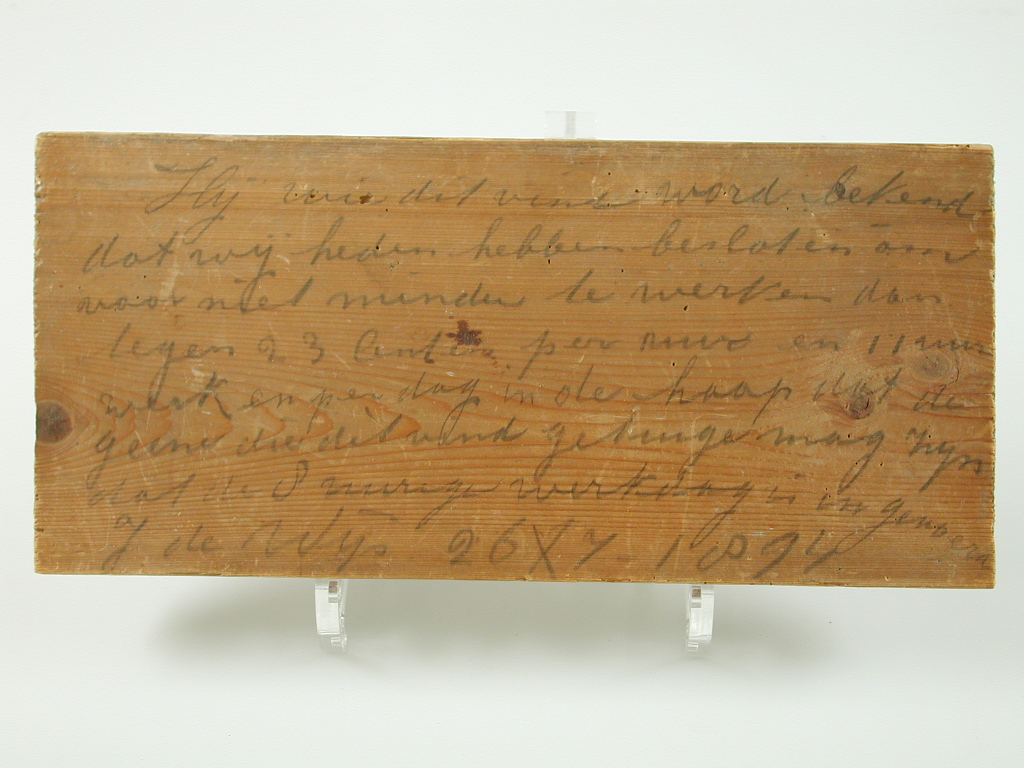 Hij wie dit vind word bekend
dat wij heden hebben besloten om
voor niet minder te werken dan
tegen 23 Centen per uur en 11 uur
werk en per dag in de hoop dat de
geine die dit vind getuige mag zijn
dat de 8 urige werkdag is ingevoerd
J de Wijs 26 X 7 - 1894